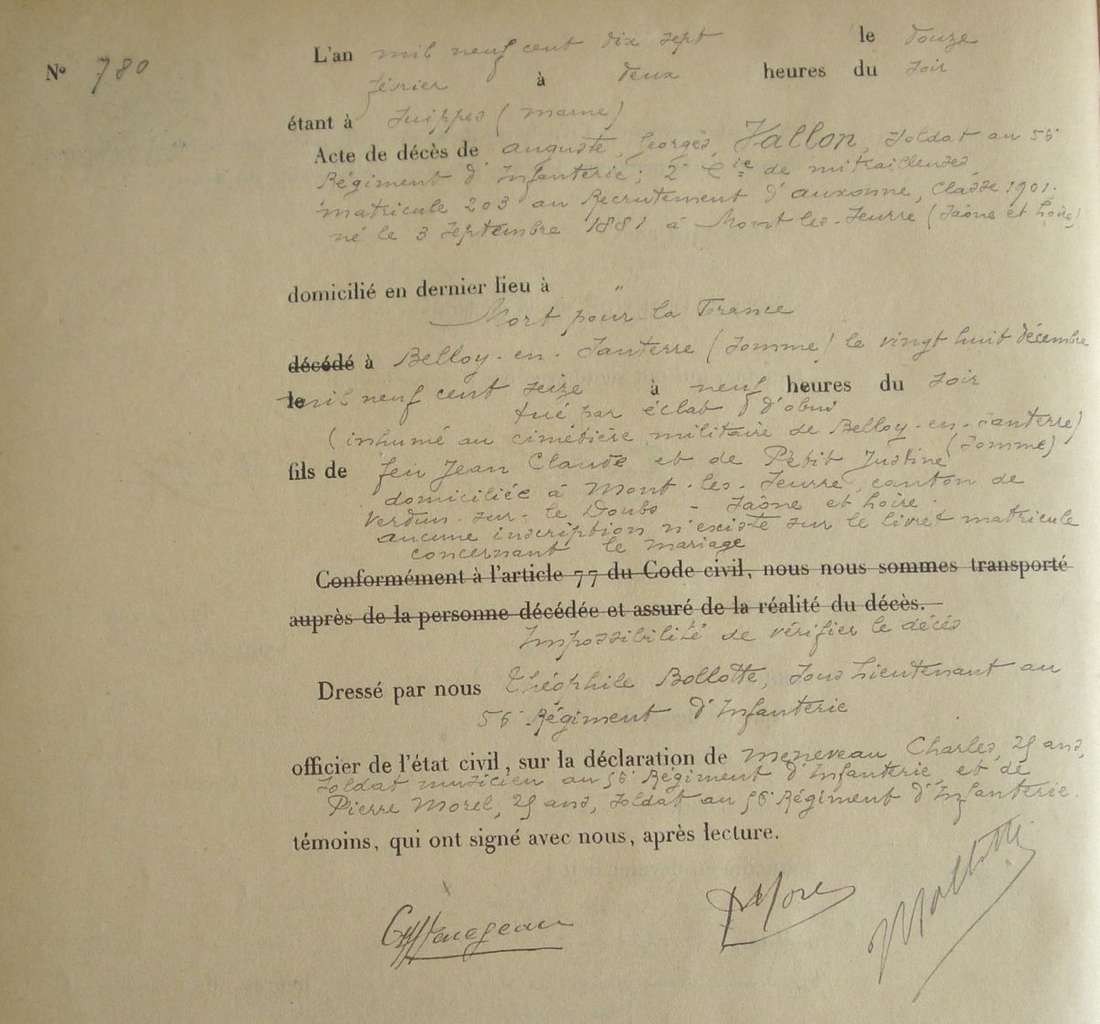 N° 780
L'an mil neuf cent dix sept le douze
février à deux heures du soir
étant à Suippes (Marne)
Acte de décès de Auguste, Georges, Vallon, soldat au 56e
Régiment d'Infanterie; 2e Cie de mitrailleuses
matricule 203 au Recrutement d'Auxonne, Classe 1901.
né le 3 Septembre 1881 à Mont-les-Seurre (Saône et Loire)
domicilié en dernier lieu à "
Mort pour la France
décédé à Belloy-en-Santerre (Somme) le vingt huit décembre
le mil neuf cent seize à neuf heures du soir
tué par éclat d'obus
(inhumé au cimétière militaire de Belloy-en-Santerre)
(Somme)
fils de feu Jean Claude et de Petit Justine
domiciliée à Mont-les-Seurre, canton de
Verdun-sur-le Doubs - Saône et Loire.
aucune inscription n'existe sur le livret matricule
concernant le mariage
Conformément à l'article 77 du Code civil, nous nous sommes transporté
auprès de la personne décédée et assuré de la réalité du décès.
Impossibilité de vérifier le décès
Dressé par nous Théophile Bollotte, Sous Lieutenant au
56e Régiment d'Infanterie
officier de l'état civil, sur la déclaration de Meneveau Charles, 25 ans,
Soldat musicien au 56e Régiment d'Infanterie, et de
Pierre Morel, 25 ans, Soldat au 56e Régiment d'Infanterie.
témoins, qui ont signé avec nous, après lecture.